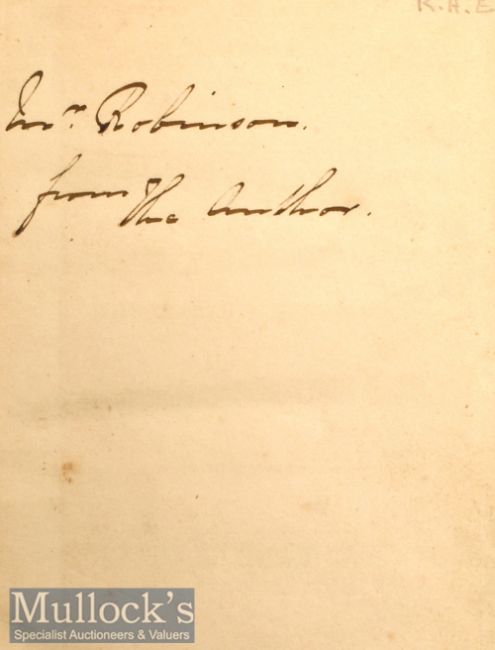 R.A.E
Mr. Robinson.
from the Author.
Mullock's
Specialist Auctioneers & Valuers